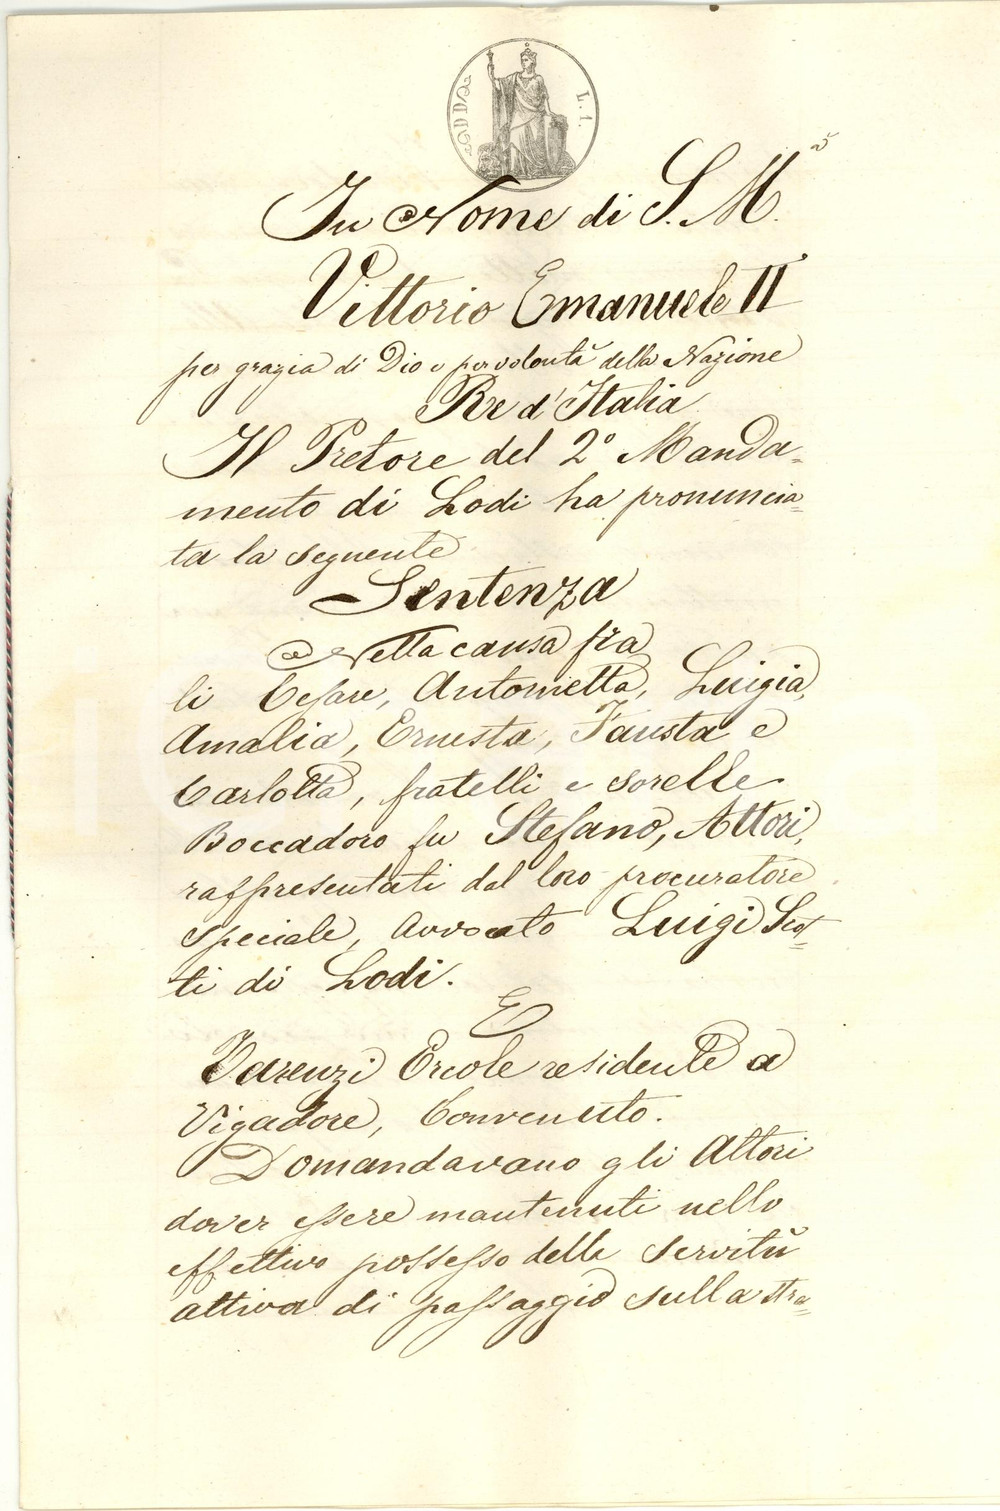 L. 1.
In Nome di S. M.à
Vittorio Emanuele II°
per grazia di Dio e per volontà della Nazione
Re d'Italia
Il Pretore del 2° Manda=
mento di Lodi ha pronuncia=
ta la seguente
Sentenza
Nella causa fra
li Cesare, Antonietta, Luigia,
Amalia, Ernesta, Fausta e
Carlotta, fratelli e sorelle
Boccadoro fu Stefano, Attori,
rappresentati dal loro procuratore
speciale, Avvocato Luigi Scot=
ti di Lodi.
E
Varenzi Ercole residente a
Vigadore, Convenuto.
Domandavano gli Attori
dover essere mantenuti nello
effettivo possesso delle servitù
attiva di passaggio sulla stra=